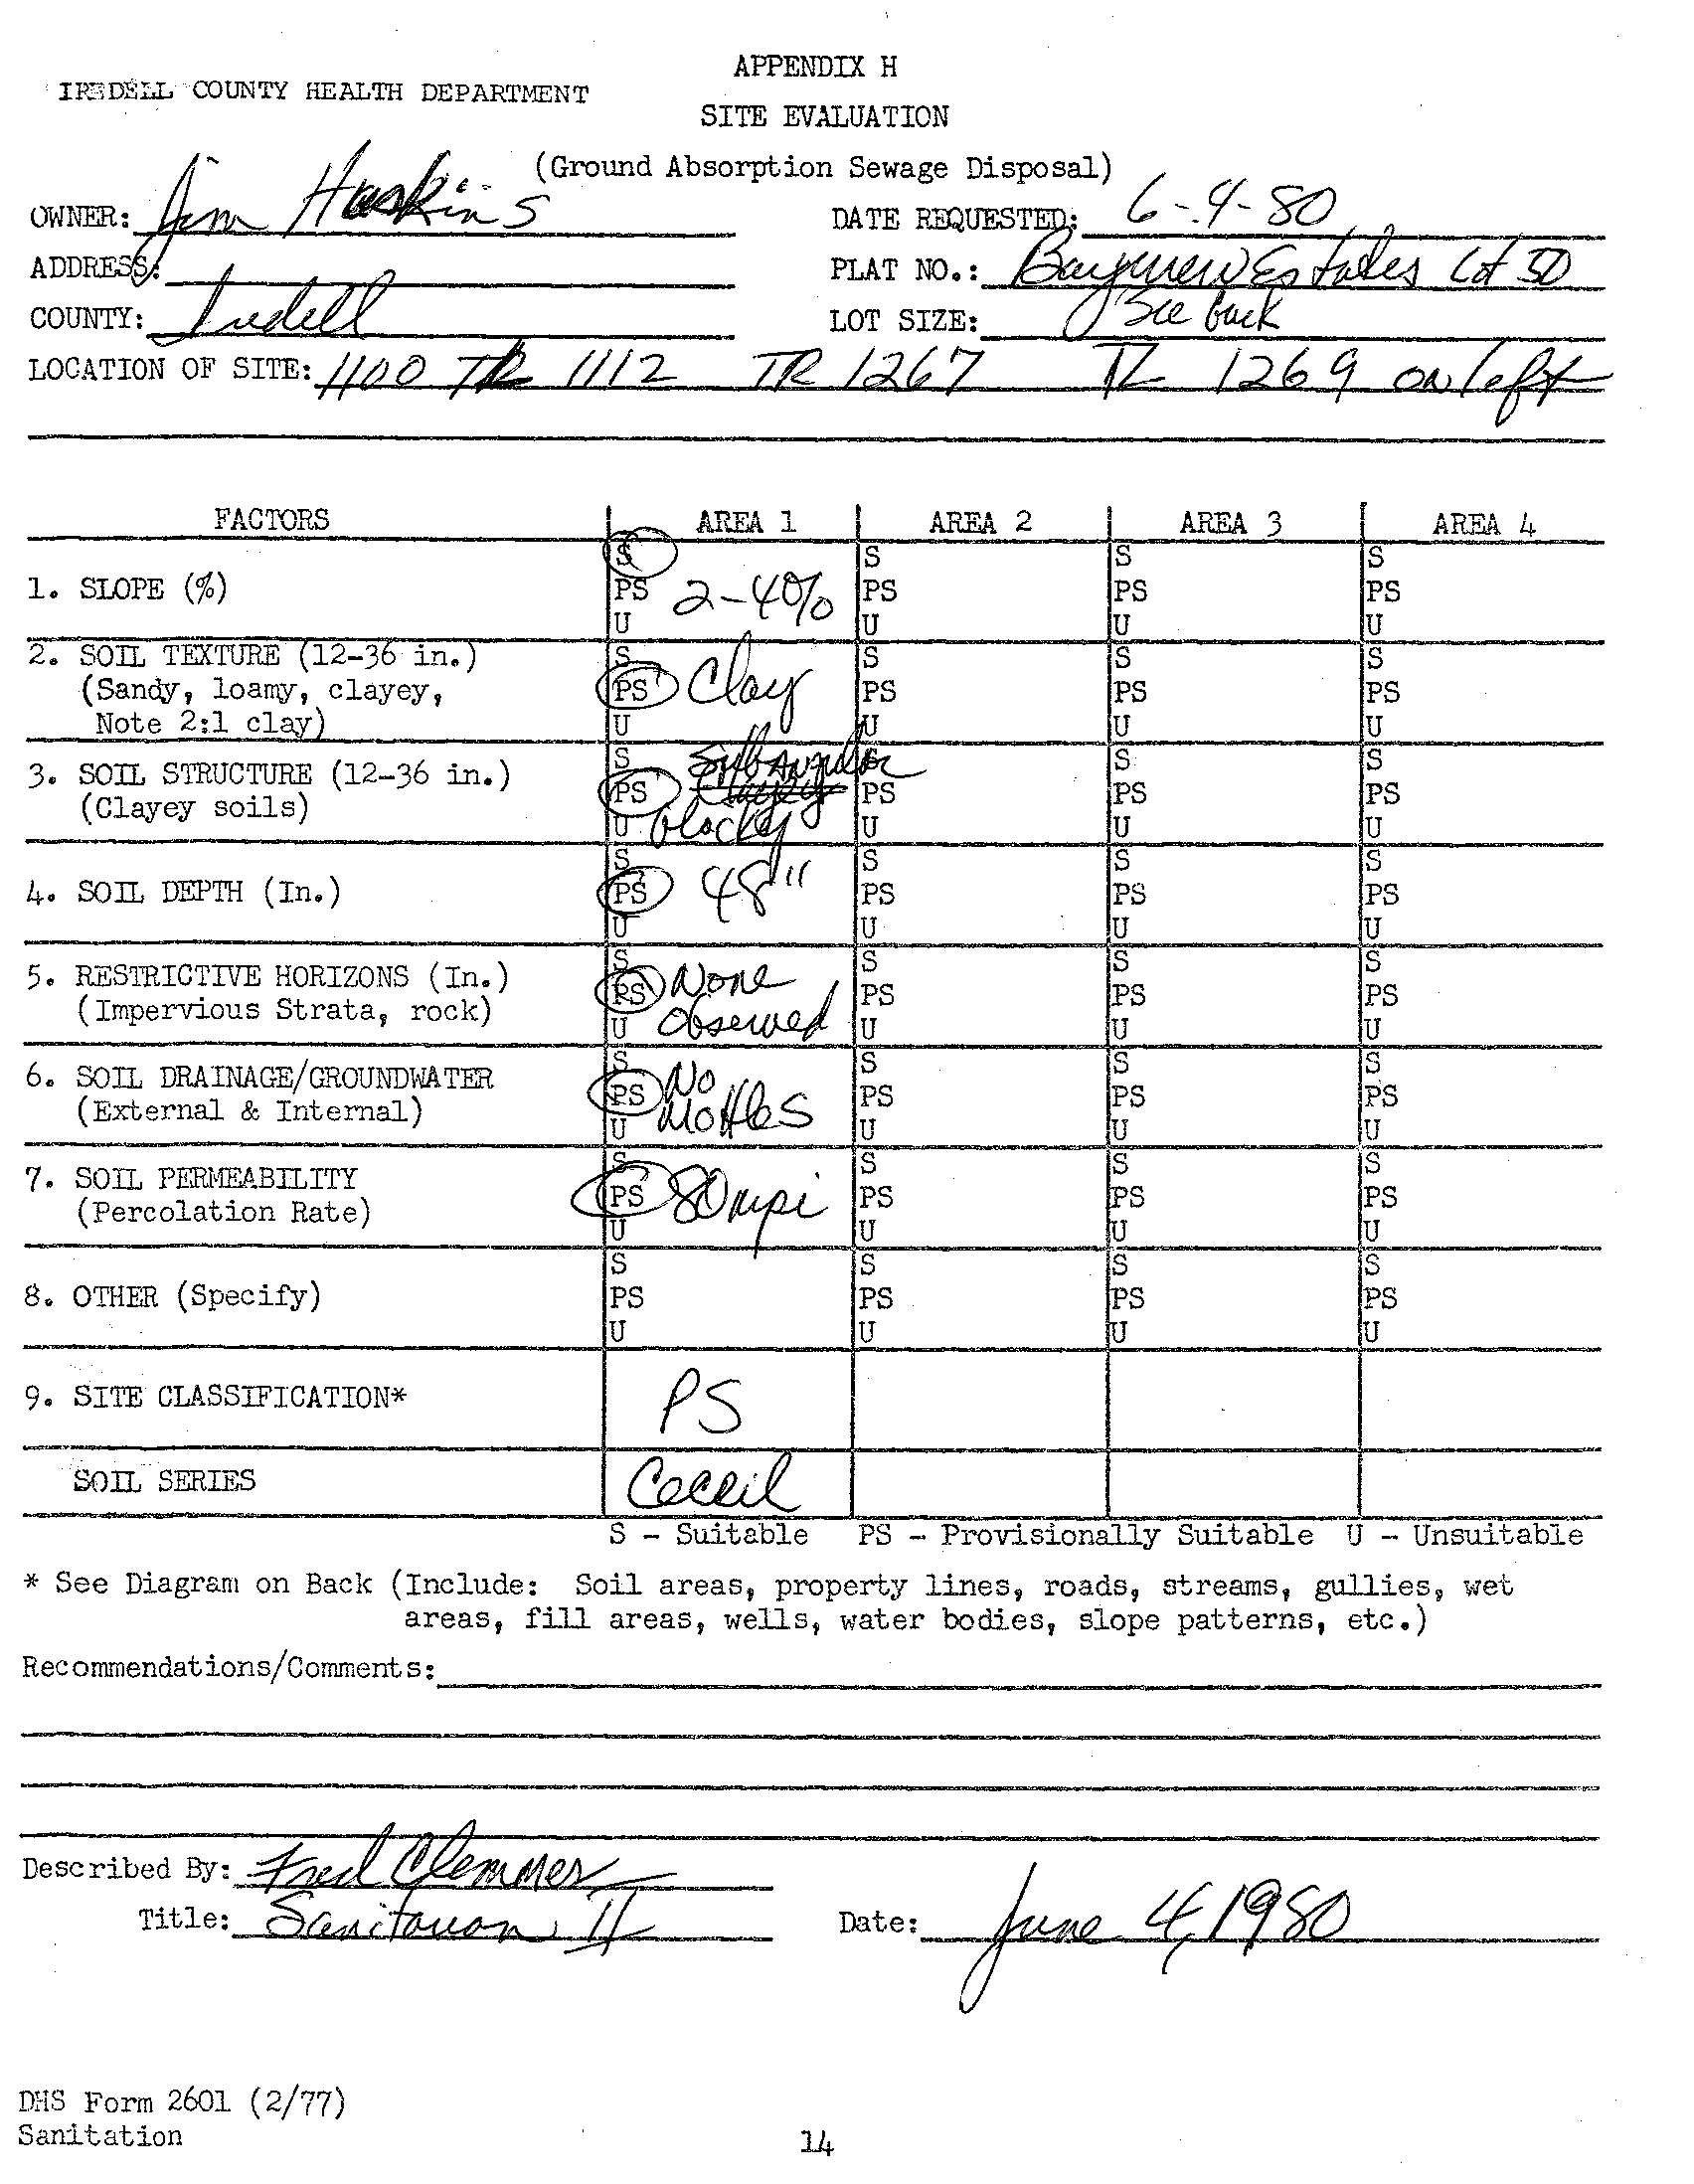 APPENDIX H
IREDELL COUNTY HEALTH DEPARTMENT
SITE EVALUATION
(Ground Absorption Sewage Disposal)
OWNER: Jim Haskins DATE REQUESTED: 6-4-80
ADDRESS: PLAT NO.: Bayview Estates Lot 50
COUNTY: Iredell LOT SIZE: See back
LOCATION OF SITE: 1100 TR 1112 TR 1267 TL 1269 on left
FACTORS AREA 1 AREA 2 AREA 3 AREA 4
S S S S
1. SLOPE (%) PS 2-4% PS PS PS
U U U U
2. SOIL TEXTURE (12-36 in.) S S S S
(Sandy, loamy, clayey, PS Clay PS PS PS
Note 2:1 clay) U U U U
S Subangular S S S
3. SOIL STRUCTURE (12-36 in.) PS PS PS PS
(Clayey soils) U blocky U U U
S S S S
4. SOIL DEPTH (In.) PS 48" PS PS PS
U U U U
5. RESTRICTIVE HORIZONS (In.) S None S S S
(Impervious Strata, rock) PS Observed PS PS PS
U U U U
6. SOIL DRAINAGE/GROUNDWATER S No S S S
(External & Internal) PS Mottles PS PS PS
U U U U
7. SOIL PERMEABILITY S S S S
(Percolation Rate) PS 80 mpi PS PS PS
U U U U
S S S S
8. OTHER (Specify) PS PS PS PS
U U U U
9. SITE CLASSIFICATION* PS
SOIL SERIES Cecil
S - Suitable PS - Provisionally Suitable U - Unsuitable
* See Diagram on Back (Include: Soil areas, property lines, roads, streams, gullies, wet
areas, fill areas, wells, water bodies, slope patterns, etc.)
Recommendations/Comments:
Described By: Fred Clemmer
Title: Sanitarian II Date: June 4, 1980
DHS Form 2601 (2/77)
Sanitation
14